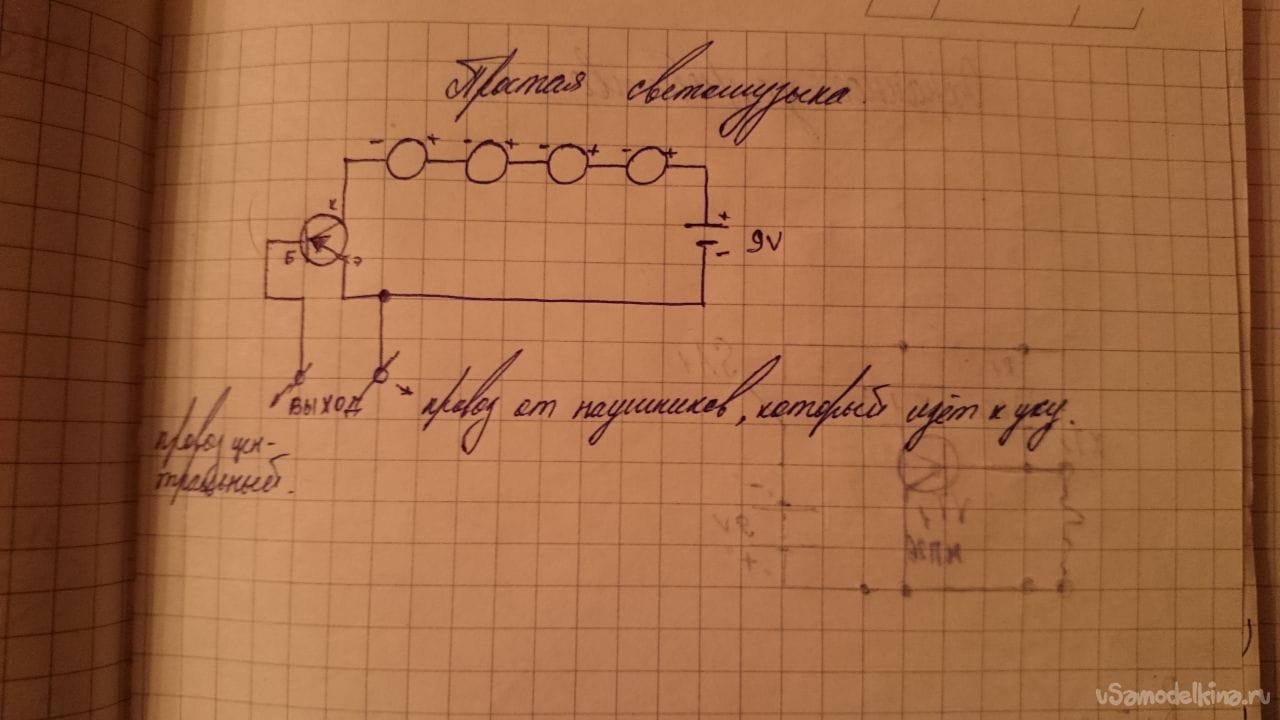 Простая светомузыка.
- + - + - + - +
к
+
Б
э
9V
-
ВЫХОД → провод от наушников, который идёт к уху.
провод цен-
тральный.
5Л1
-
9V
+
МП26
vSamodelkina.ru